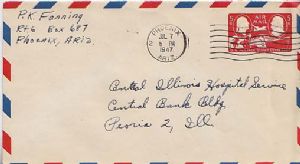 P.K. Fanning
Rt 6 Box 687
Phoenix, Ariz
PHOENIX,
JUL 7
5 PM
1947
ARIZ.
5¢
AIR MAIL
5¢
Central Illinois Hospital Service
Central Bank Bldg
Peoria 2, Ill.